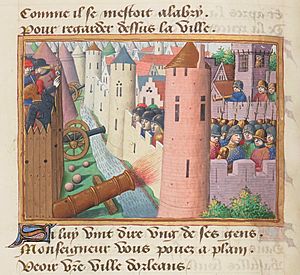 Comme il se mestoit alabry
Pour regarder dessus la ville
Si luy vint dire ung de ses gens
Monseigneur vous povez a plain
Veoir vre ville dorleans